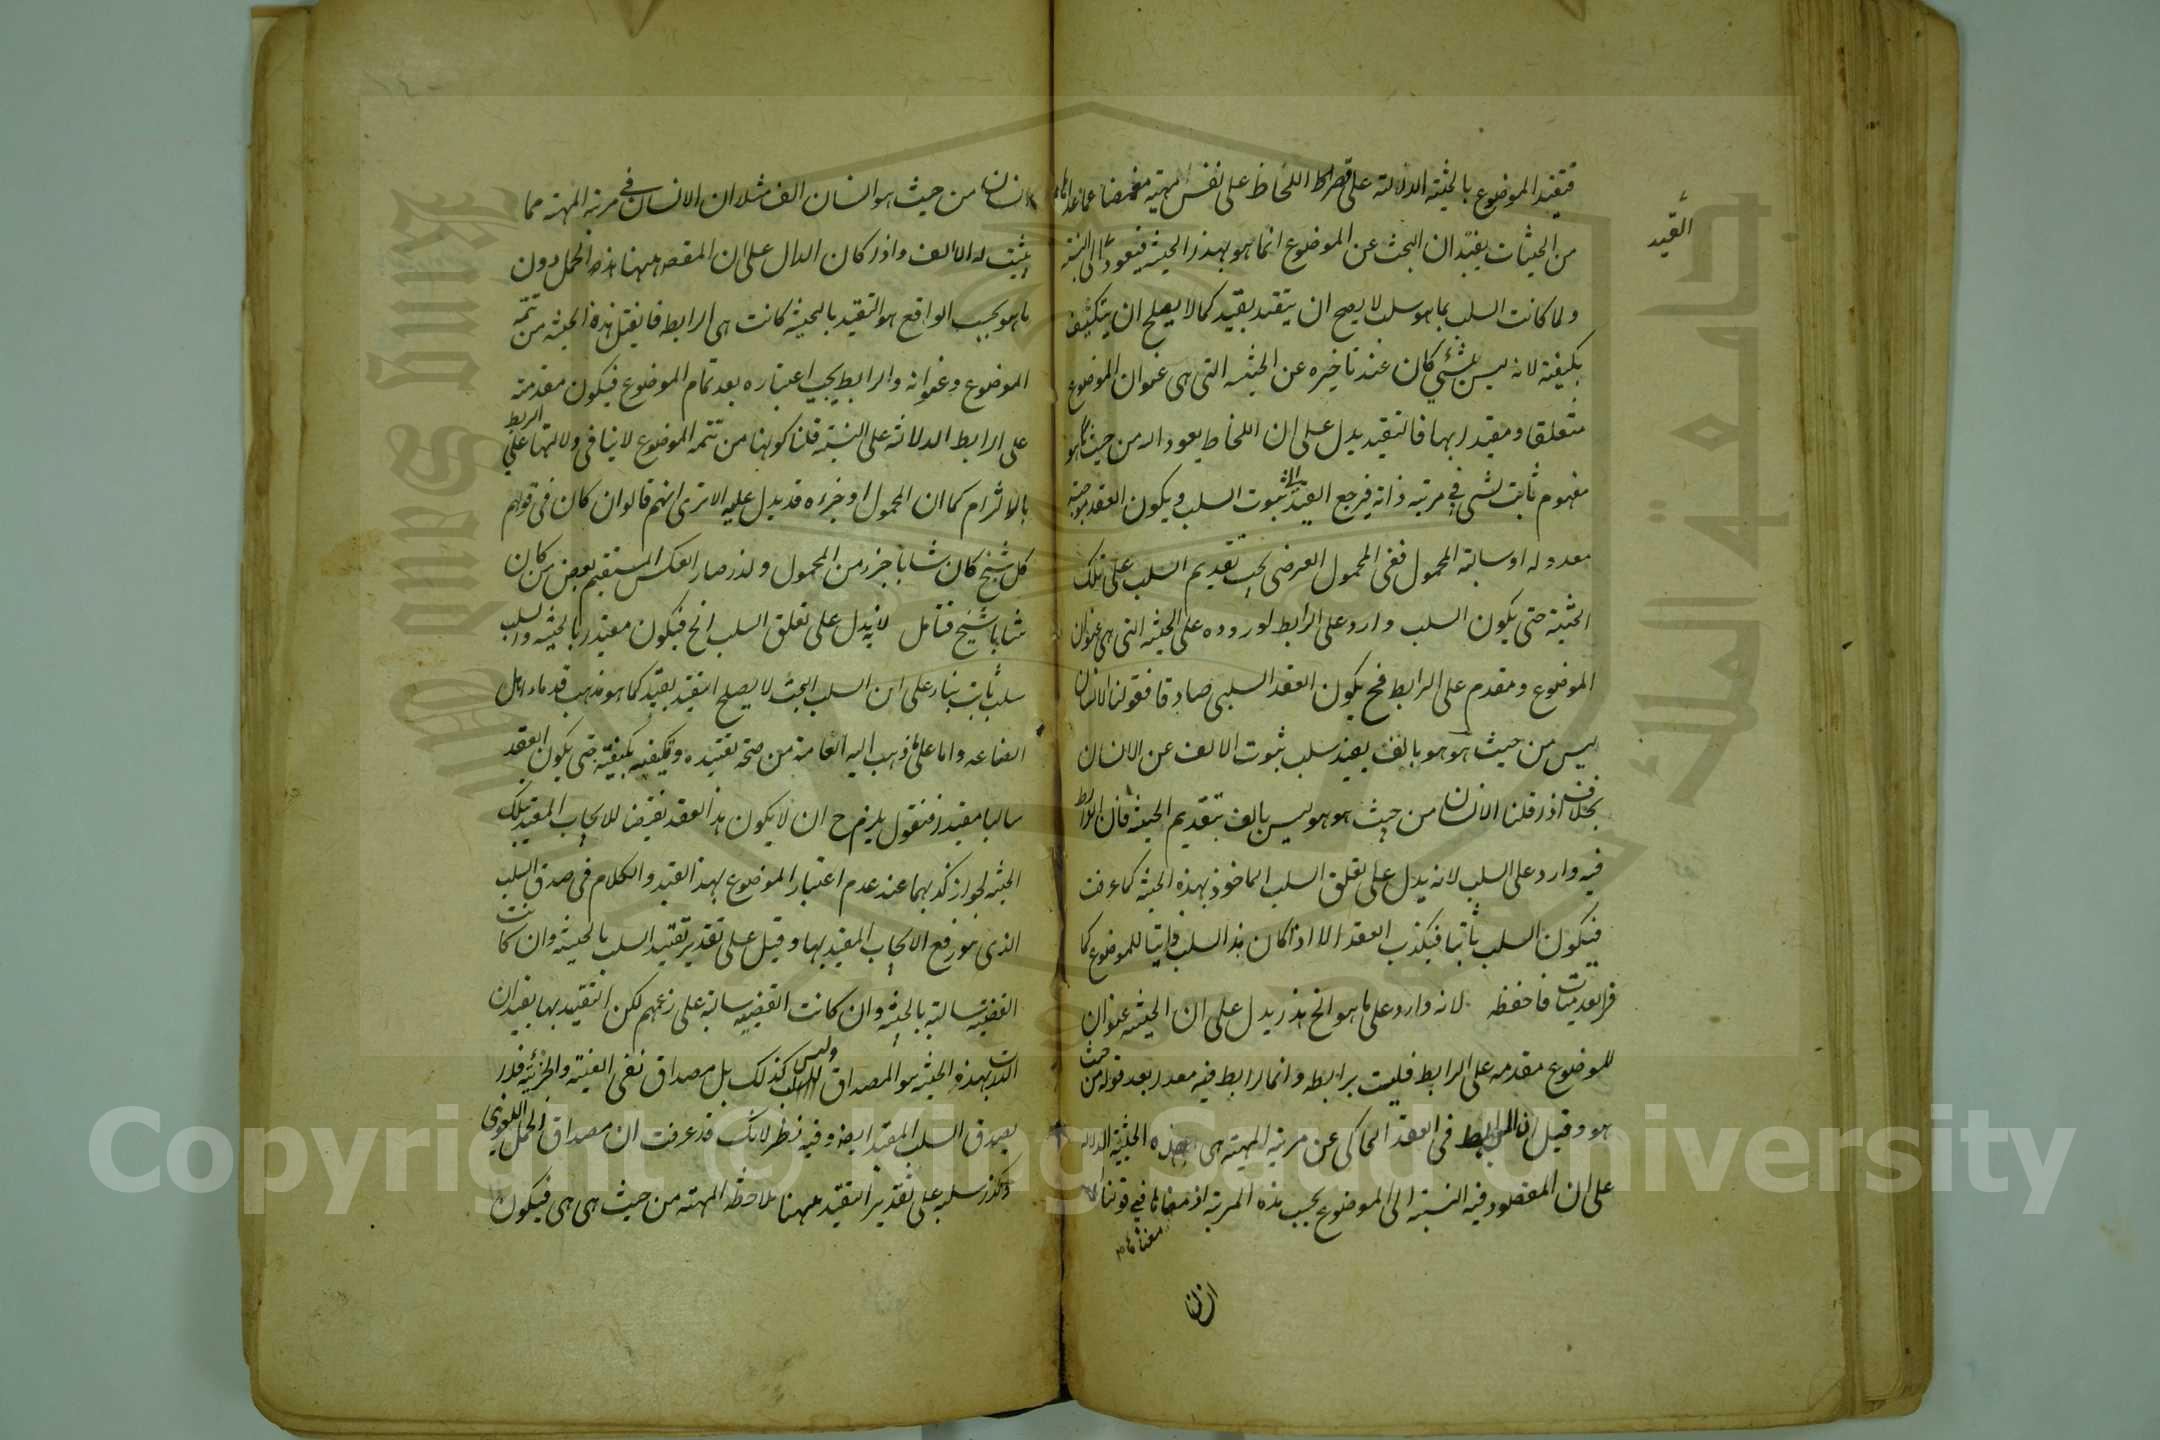 فتقيد الموضوع بالحيثية الدلالة على قصر اللحاظ على نفس المهية مغمضا عما عداها
القيد
من الحيثيات يفيد ان البحث عن الموضوع انما هو بهذا الحيثية فتعود الى النسبة
ولما كانت السلب بما هو سلب لا يصح ان يتقيد بقيد كما لا يصلح ان يتكيف
بكيفية لانه ليس بشئ كان عند تاخيره عن الحيثية التى هى عنوان الموضوع
متعلقا ومقيدا بها فالتقييد يدل على ان اللحاظ يعود اليه من حيث هو
مفهوم ثابت لشئ فى مرتبة ذاته فيرجع القيد ثبوت السلب ويكون العقد موجبة
معدولة او سالبة المحمول ففى المحمول العرضى يجب تقديم السلب على تلك
الحيثية حتى يكون السلب واردا على الرابط لوروده على الحيثية التى هى عنوان
الموضوع ومقدم على الرابط فح يكون العقد السلبى صادقا فقولنا الانسان
ليس من حيث هو هو بالف يفيد سلب ثبوت الالف عن الانسان
بخلاف اذا قلنا الانسان من حيث هو هو ليس بالف بتقديم الحيثية فان الرابط
فيه وارد على السلب لانه يدل على تعلق السلب الماخوذ بهذه الحيثية كما عرفت
فيكون السلب ثابتا فيكذب العقد الا اذا كان هذا السلب ذاتيا للموضوع كما
فى العدميات فاحفظه لانه وارد على ما هو الخ هذا يدل على ان الحيثية عنوان
للموضوع مقدمه على الرابط فليست برابطه وانما الرابط فيه مقدر بعد قوله من حيث
هو وقيل ان الرابط فى العقد الحاكى عن مرتبة المهية هى هذه الحيثية الدالة
على ان المقصود فيه النسبة الى الموضوع بحسب هذه المرتبة اذ معناها فى قولنا
الانسان من حيث هو انسان الف مثلا ان الانسان فى مرتبة المهية مما
يثبت له الالف واذا كان الدال على ان المقصود ههنا هذا الحمل دون
ما هو بحسب الواقع هو التقييد بالحيثية كانت هى الرابط فان قيل هذه الحيثية من تتمة
الموضوع وعنوانه والرابط يجب اعتباره بعد تمام الموضوع فيكون مقدمة
على الرابط الدلالة على النسبة قلنا كونها من تتمة الموضوع لا ينافى دلالتها على الربط
بالالتزام كما ان المحمول او جزءه قد يدل عليه الا ترى انهم قالوا ان كان فى قولهم
كل شيخ كان شابا جزء من المحمول ولذا صار العكس المستقيم بعض من كان
شابا شيخ فتامل لانه يدل على تعلق السلب الخ فيكون مقيدا بالحيثية والسلب
سلب ثابت بناء على ان السلب البحت لا يصلح التقييد بقيد كما هو مذهب قدماء اهل
الصناعه واما على ما ذهب اليه العامة من صحة تقييده وتكيفه بكيفية حتى يكون العقد
سالبا مقيدا فنقول يلزم ح ان لا يكون هذا العقد نقيضا للايجاب المقيد بتلك
الحيثية لجواز كذبهما عند عدم اعتبار الموضوع بهذا القيد والكلام فى صدق السلب
الذى هو رفع الايجاب المقيد بها وقيل على تقدير تقييد السلب بالحيثية وان كانت
القضية سالبة بالحيثية وان كانت القضية سالبة على زعمهم لكن التقييد بها يفيد ان
الذات بهذه الحيثية هو المصداق للسلب وليس كذلك بل مصداق نفى العينية والجزئية فلا
يصدق السلب المقيد ايضا وفيه نظر لانك قد عرفت ان مصداق الحمل اللغوى
وكذا سلبه على تقدير التقييد ههنا ملاحظة المهية من حيث هى هى فيكون